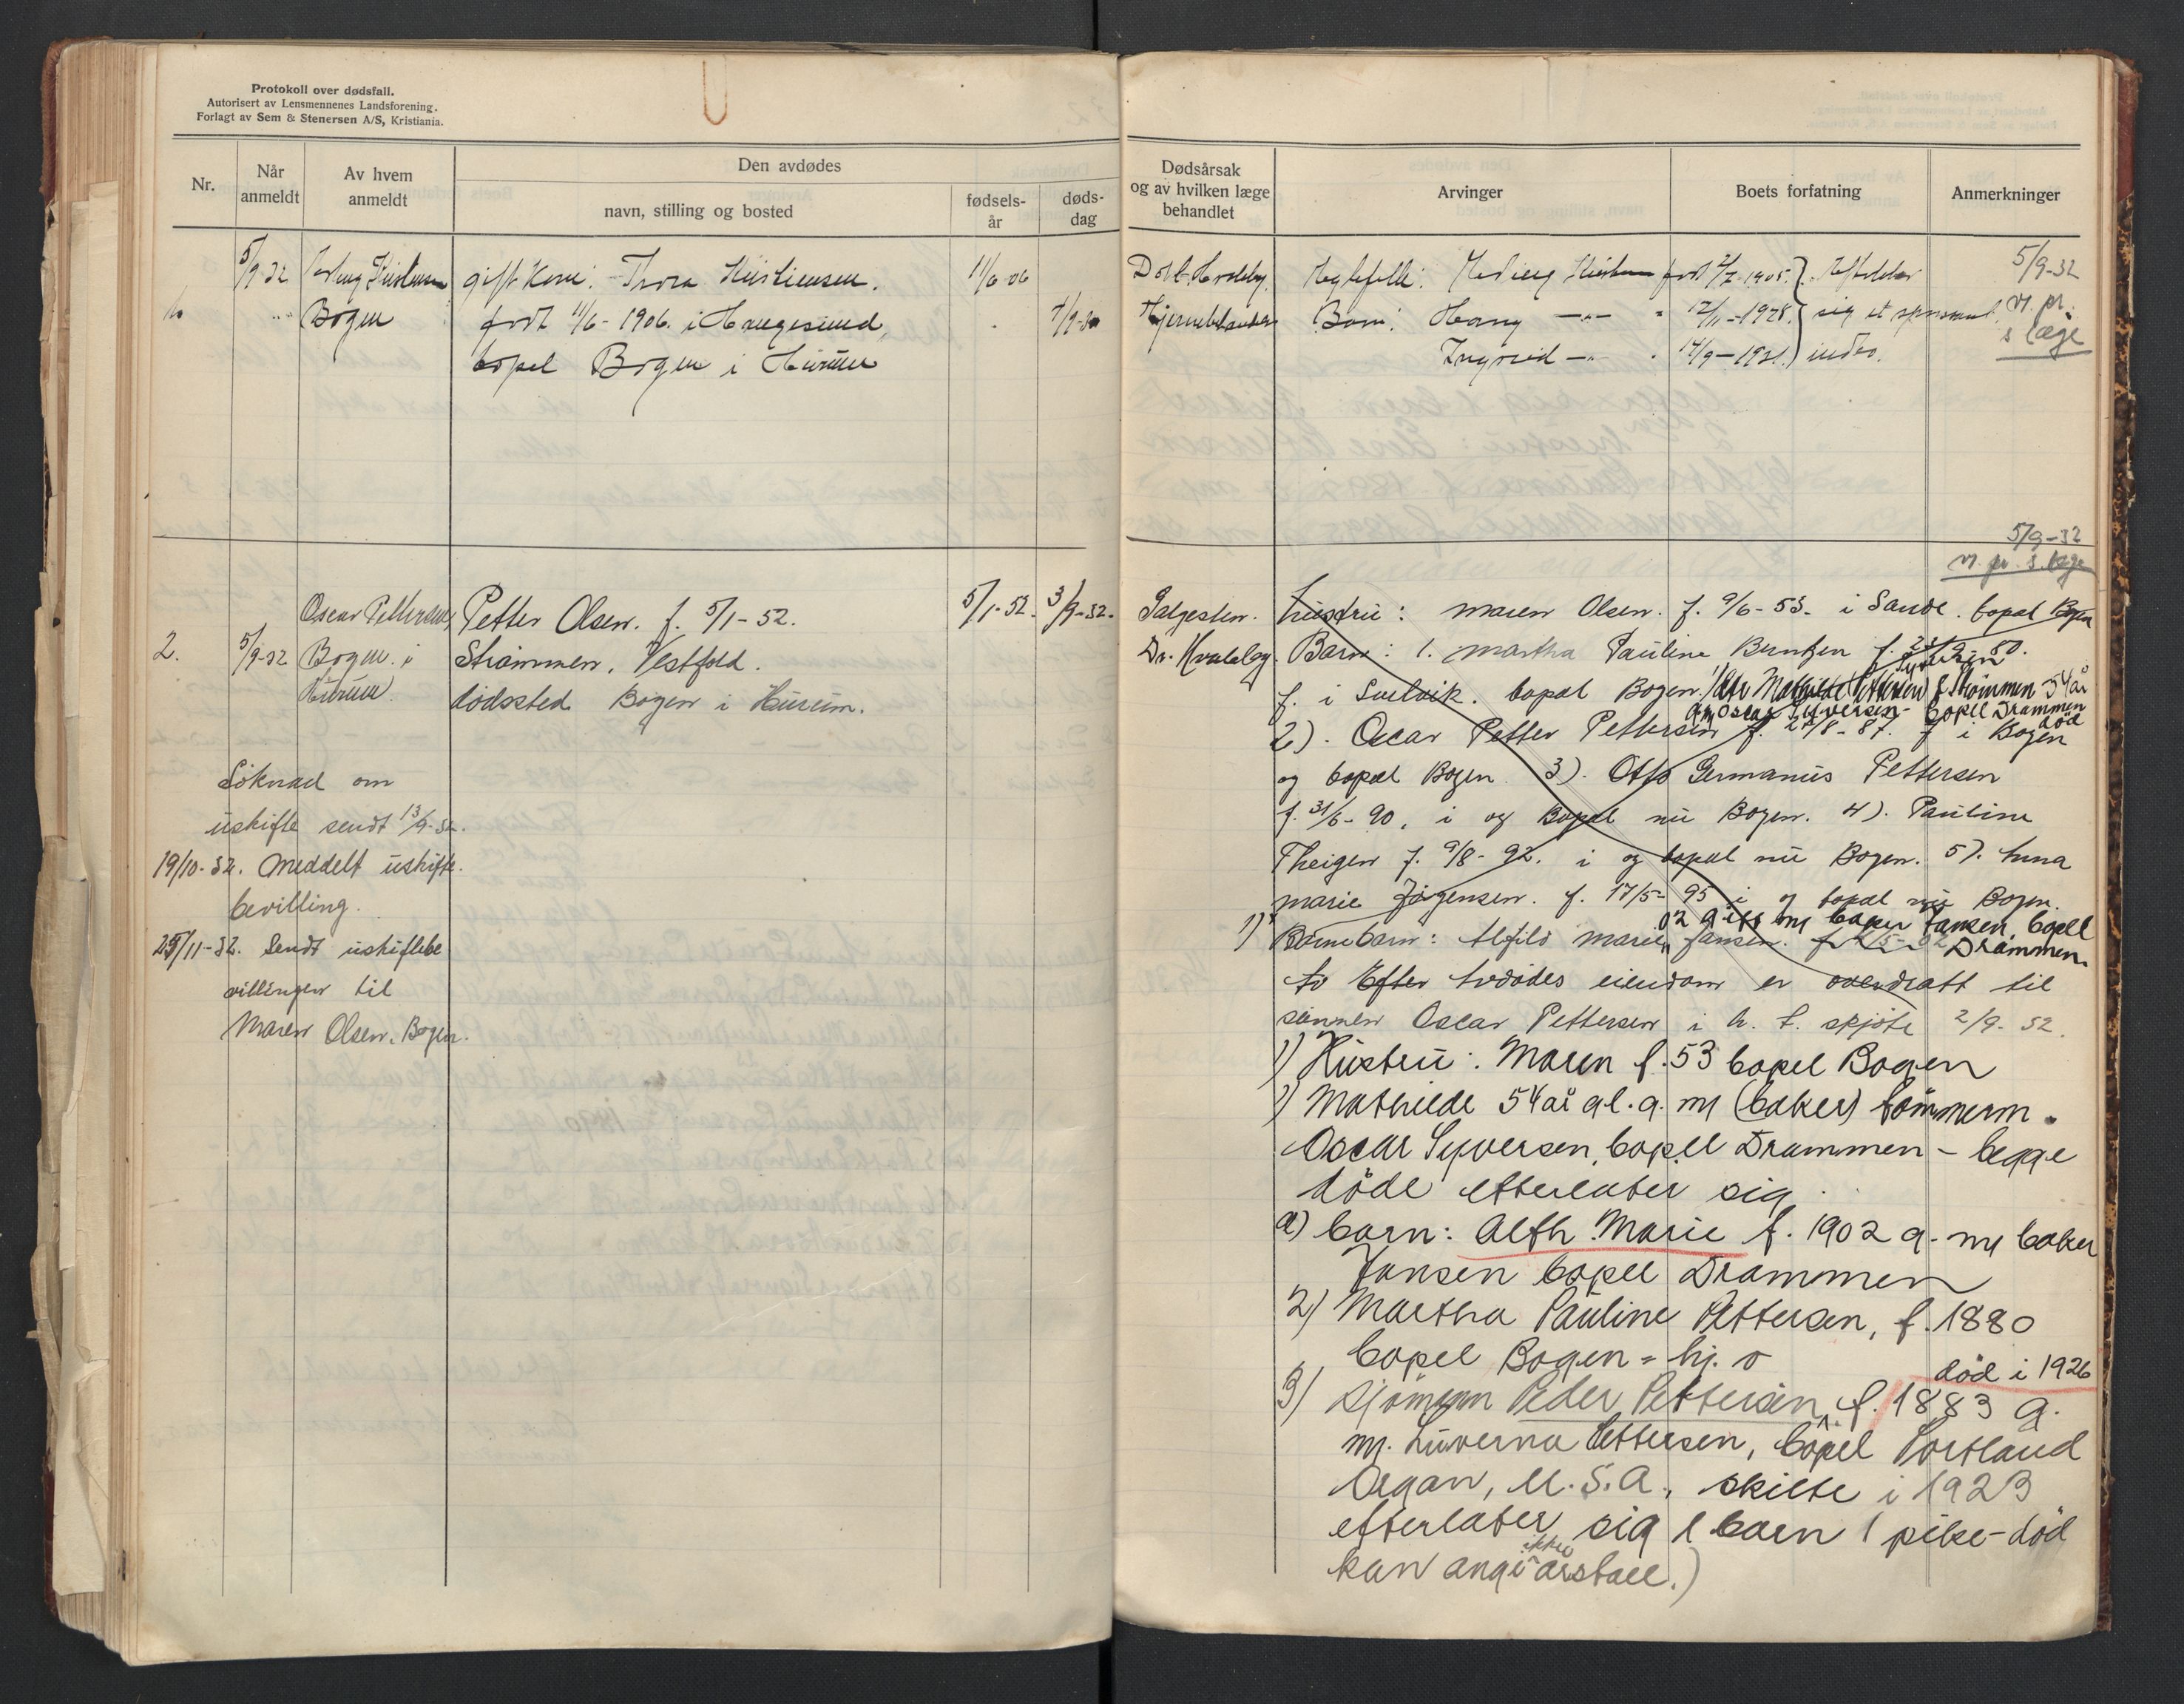 Protokoll over dødsfall.
Autorisert av Lensmennenes Landsforening.
Forlagt av Sem & Stenersen A/S, Kristiania.
Nr.
Når anmeldt
Av hvem anmeldt
Den avdødes
navn, stilling og bosted
fødsels-år
døds-dag
5/9-32
Bogen
gift Kone: Thora Kristiensen.
født 11/6-1906. i Haugesund,
bopel Bogen i Hurum
11/6-06
2.
5/9-32
Oscar Pettersen,
Bogen i
Hurum.
Petter Olsen. f. 5/1-52.
Strömmen, Vestfold.
dödssted Bogen i Hurum.
5/1-52.
3/9-32.
Söknad om
uskifte sendt 13/9-32.
19/10-32. Meddelt uskifte-
bevilling.
25/11-32. Sendt uskiftebe
villingen til
Maren Olsen, Bogen.
Dødsårsak
og av hvilken læge
behandlet
Arvinger
Boets forfatning
Anmerkninger
Ektefelle:
født 2/7-1905.
Barn: Harry
12/11-1928.
Ingrid
14/9-1931.
5/9-32
m. pr.
s læge
5/9-32
m. pr. s. læge
Dr. Hvaleby.
Hustru: Maren Olsen. f. 9/6-53. i Sande. bopæl Bogen
Barn: 1. Martha Pauline Berntzen
f. i Svelvik. bopæl Bogen.
Strömmen 54 år
g. m Oscar Syversen bopel Drammen
död
2). Oscar Petter Pettersen f. 27/8-87. f i Bogen
og bopæl Bogen. 3). Otto Germanius Pettersen
f. 31/6-90. i og Bopæl nu Bogen. 4). Pauline
Theigen f. 9/8-92. i og bopæl nu Bogen. 5). Anna
Marie Jörgensen. f. 17/5-95 i og bopæl nu Bogen.
02 gift m baker Jansen, bopel
1) Barnebarn: Alfild Marie Jansen.
Drammen.
Efter Avdödes eiendom er overdratt til
sönnen Oscar Pettersen i h. t. skjöte 2/9-32.
1) Hustru: Maren f. 53 bopel Bogen
1) Mathilde 54 år gl. g. m (baker) tömmerm.
Oscar Syversen, bopel Drammen - begge
döde efterlater sig
a) barn: Alfh. Marie f. 1902 g. m baker
Jansen bopel Drammen
2) Martha Pauline Pettersen, f. 1880
bopel Bogen
död i 1926
3) Sjömann Peder Pettersen, f. 1883 g.
m. Luverna Pettersen, bopel Portland
Oegan, U.S.A., skilte i 1923
efterlater sig 1 barn (pike-död
kan ikke angi årstall.)